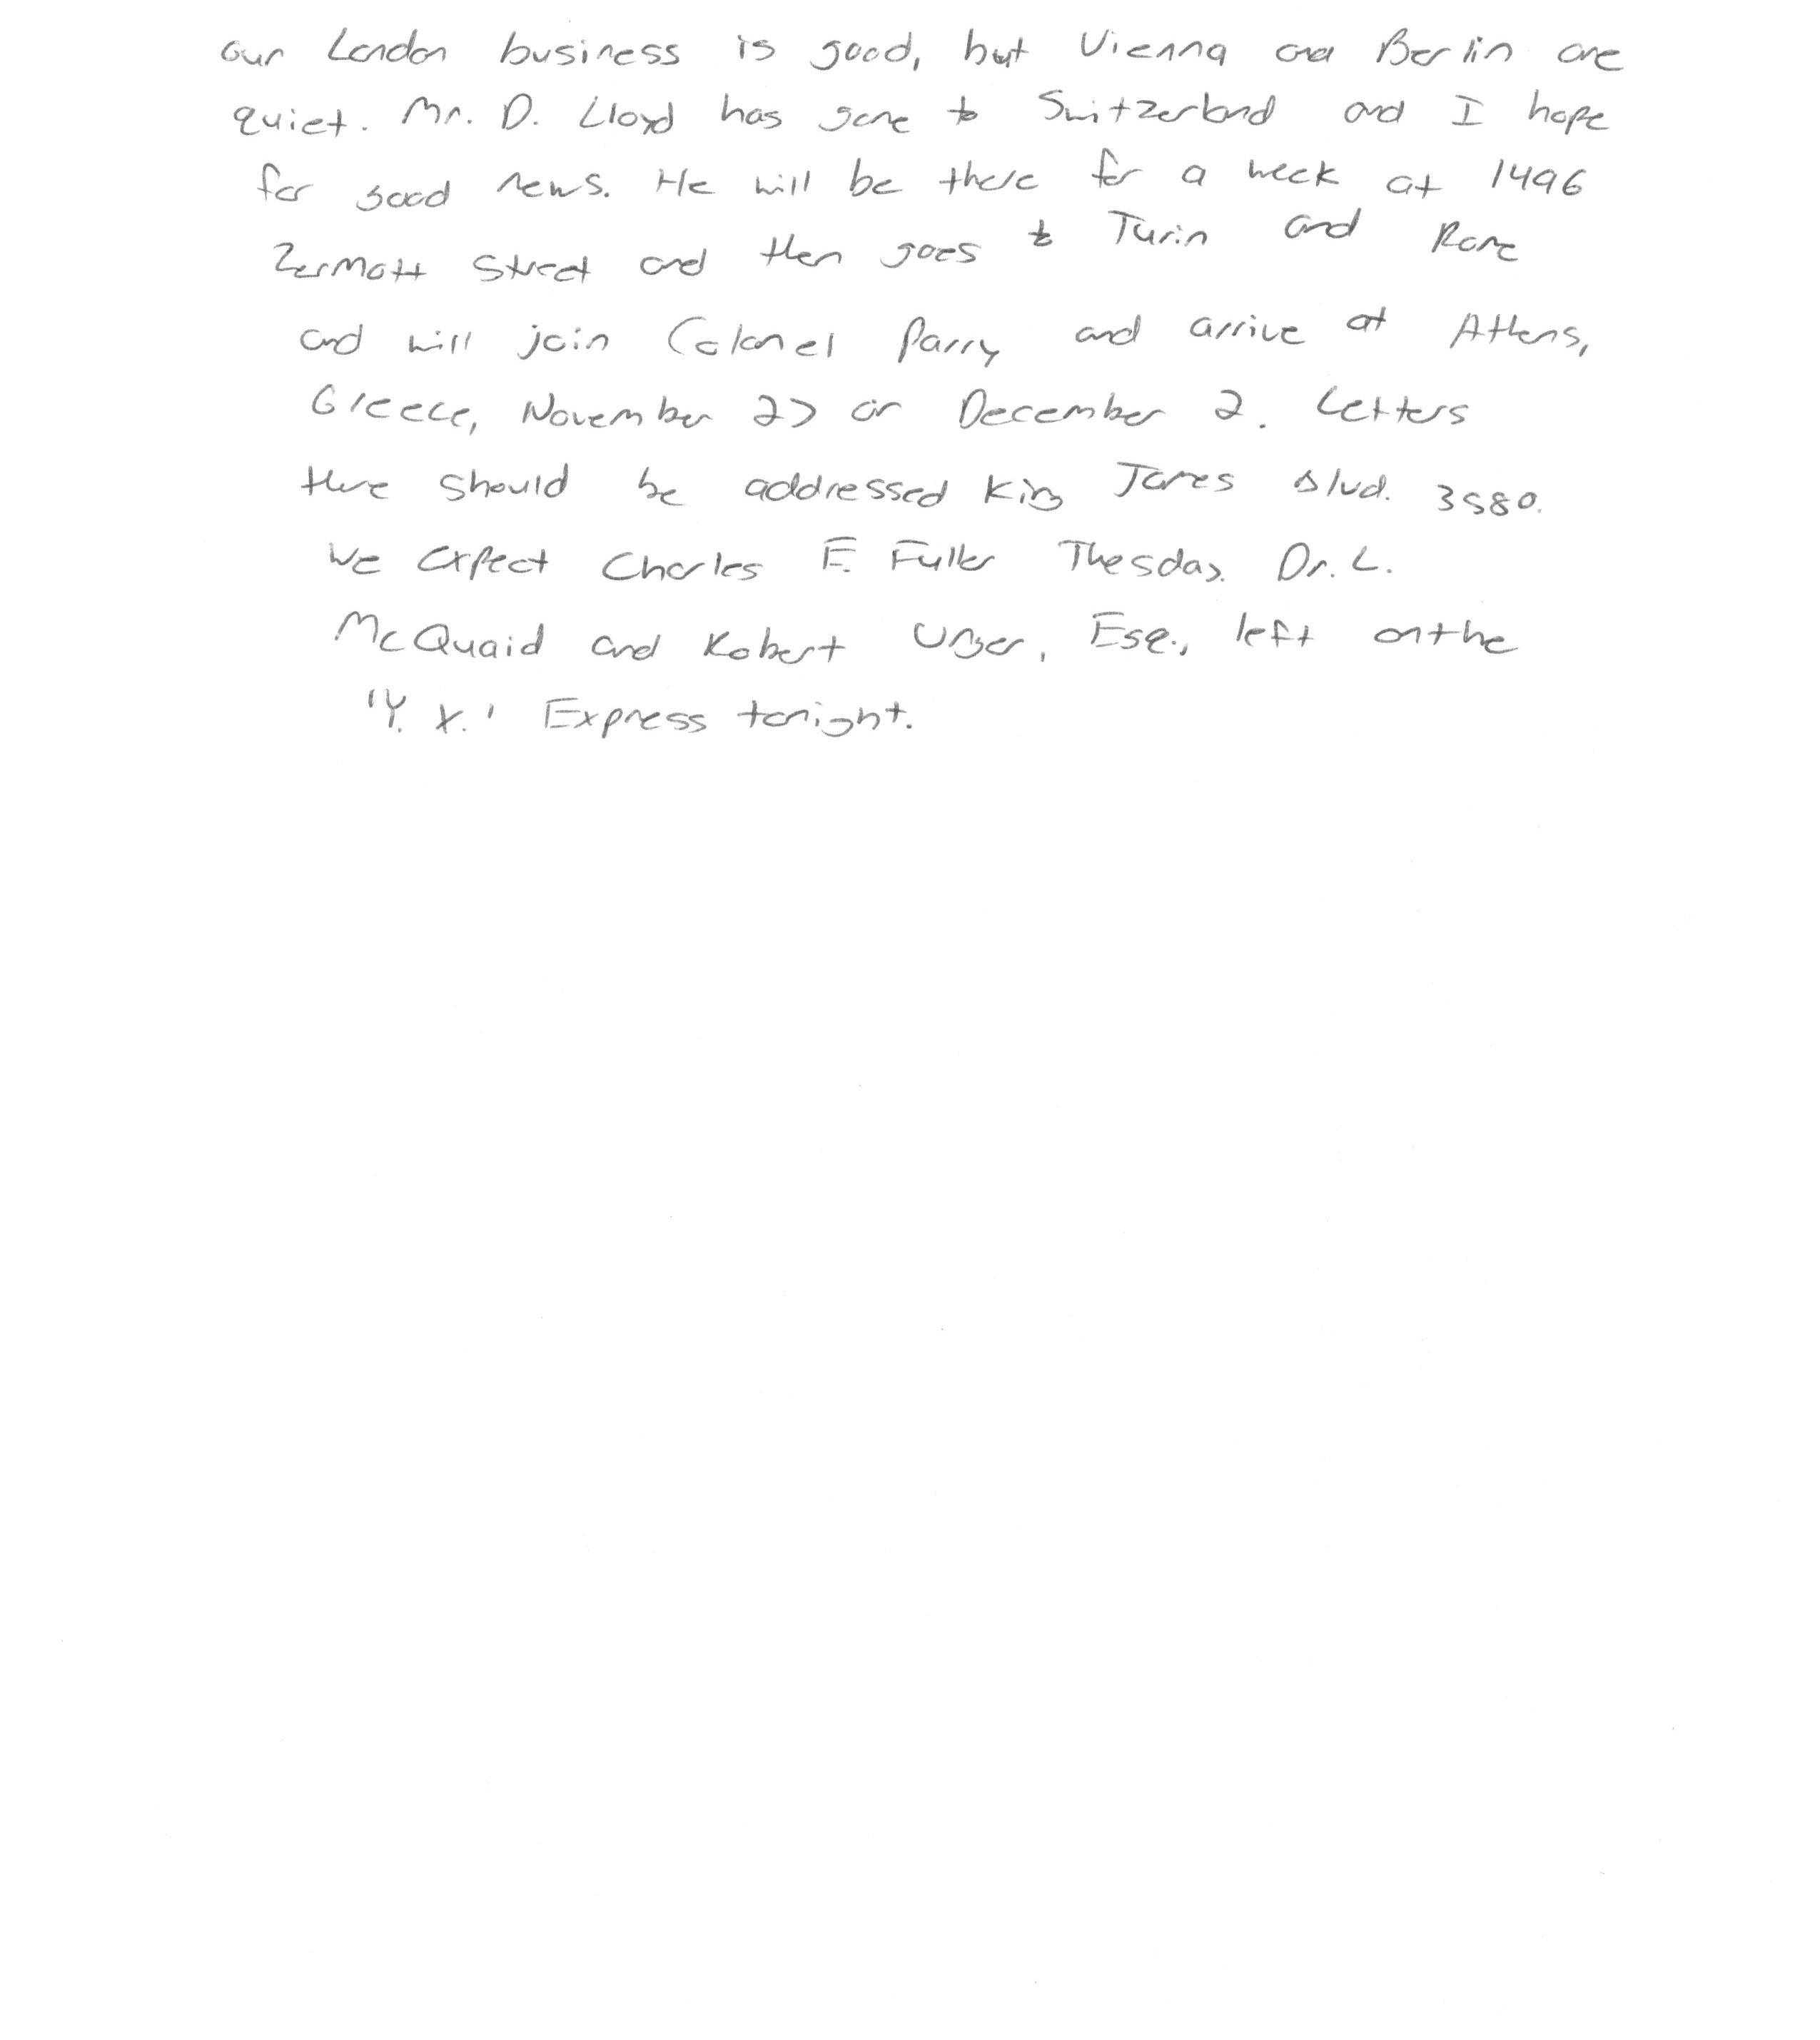 Our London business is good, but Vienna and Berlin are
quiet. Mr. D. Lloyd has gone to Switzerland and I hope
for good news. He will be there for a week at 1496
Zermott Street and then goes to Turin and Rome
and will join Colonel Parry and arrive at Athens,
Greece, November 27 or December 2. Letters
there should be addressed King James Blvd. 3580.
We expect Charles E. Fuller Thesday. Dr. L.
McQuaid and Robert Unger, Esq., left on the
'Y. X.' Express tonight.